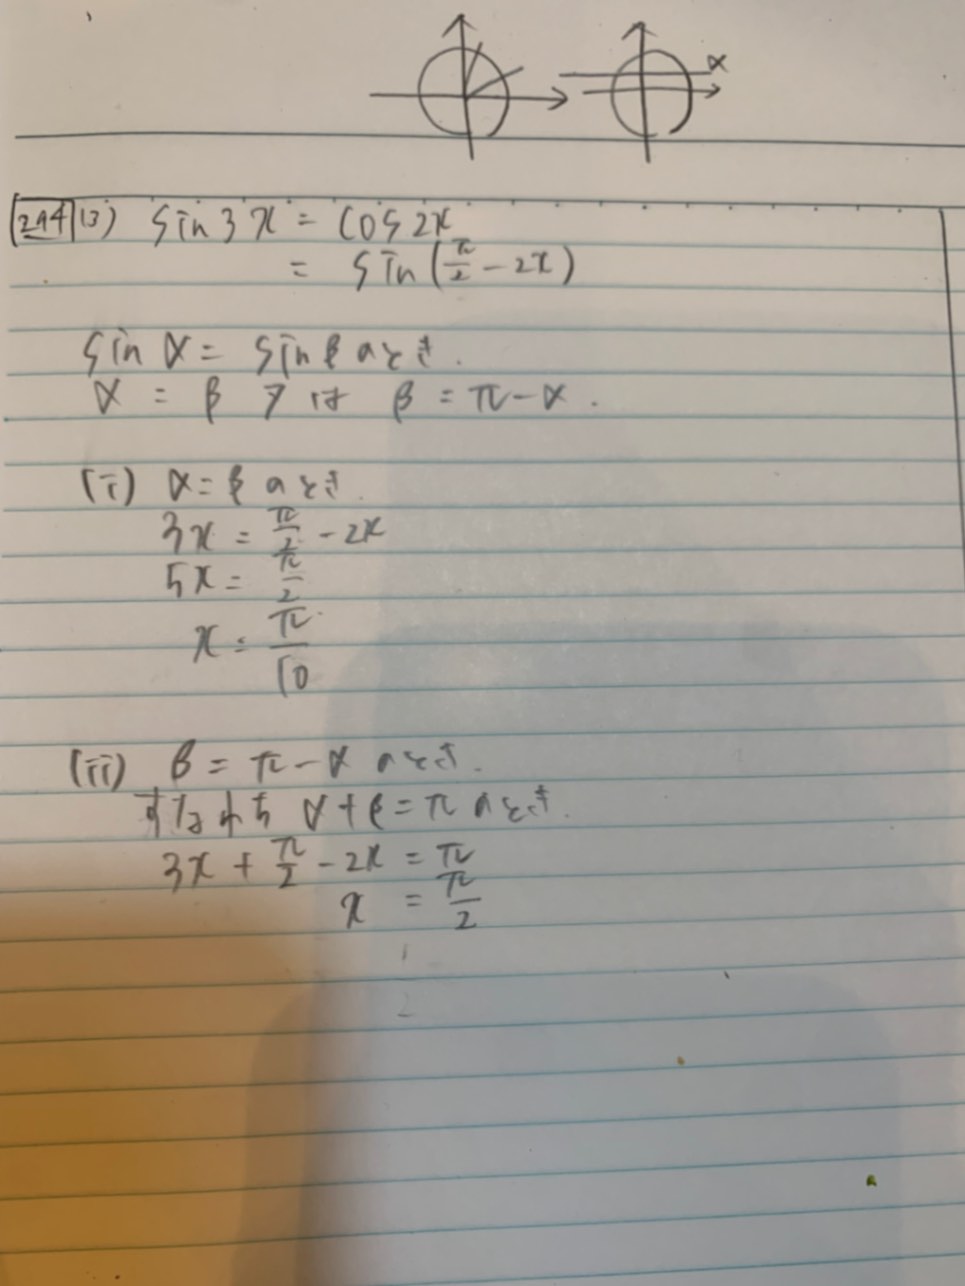 α
294 (3) sin3x = cos2x
= sin(π/2 - 2x)
sinα = sinβ のとき.
α = β 又は β = π-α.
(i) α=β のとき.
3x = π/2 - 2x
5x = π/2
x = π/10
(ii) β = π-α のとき.
すなわち α+β=π のとき.
3x + π/2 - 2x = π
x = π/2